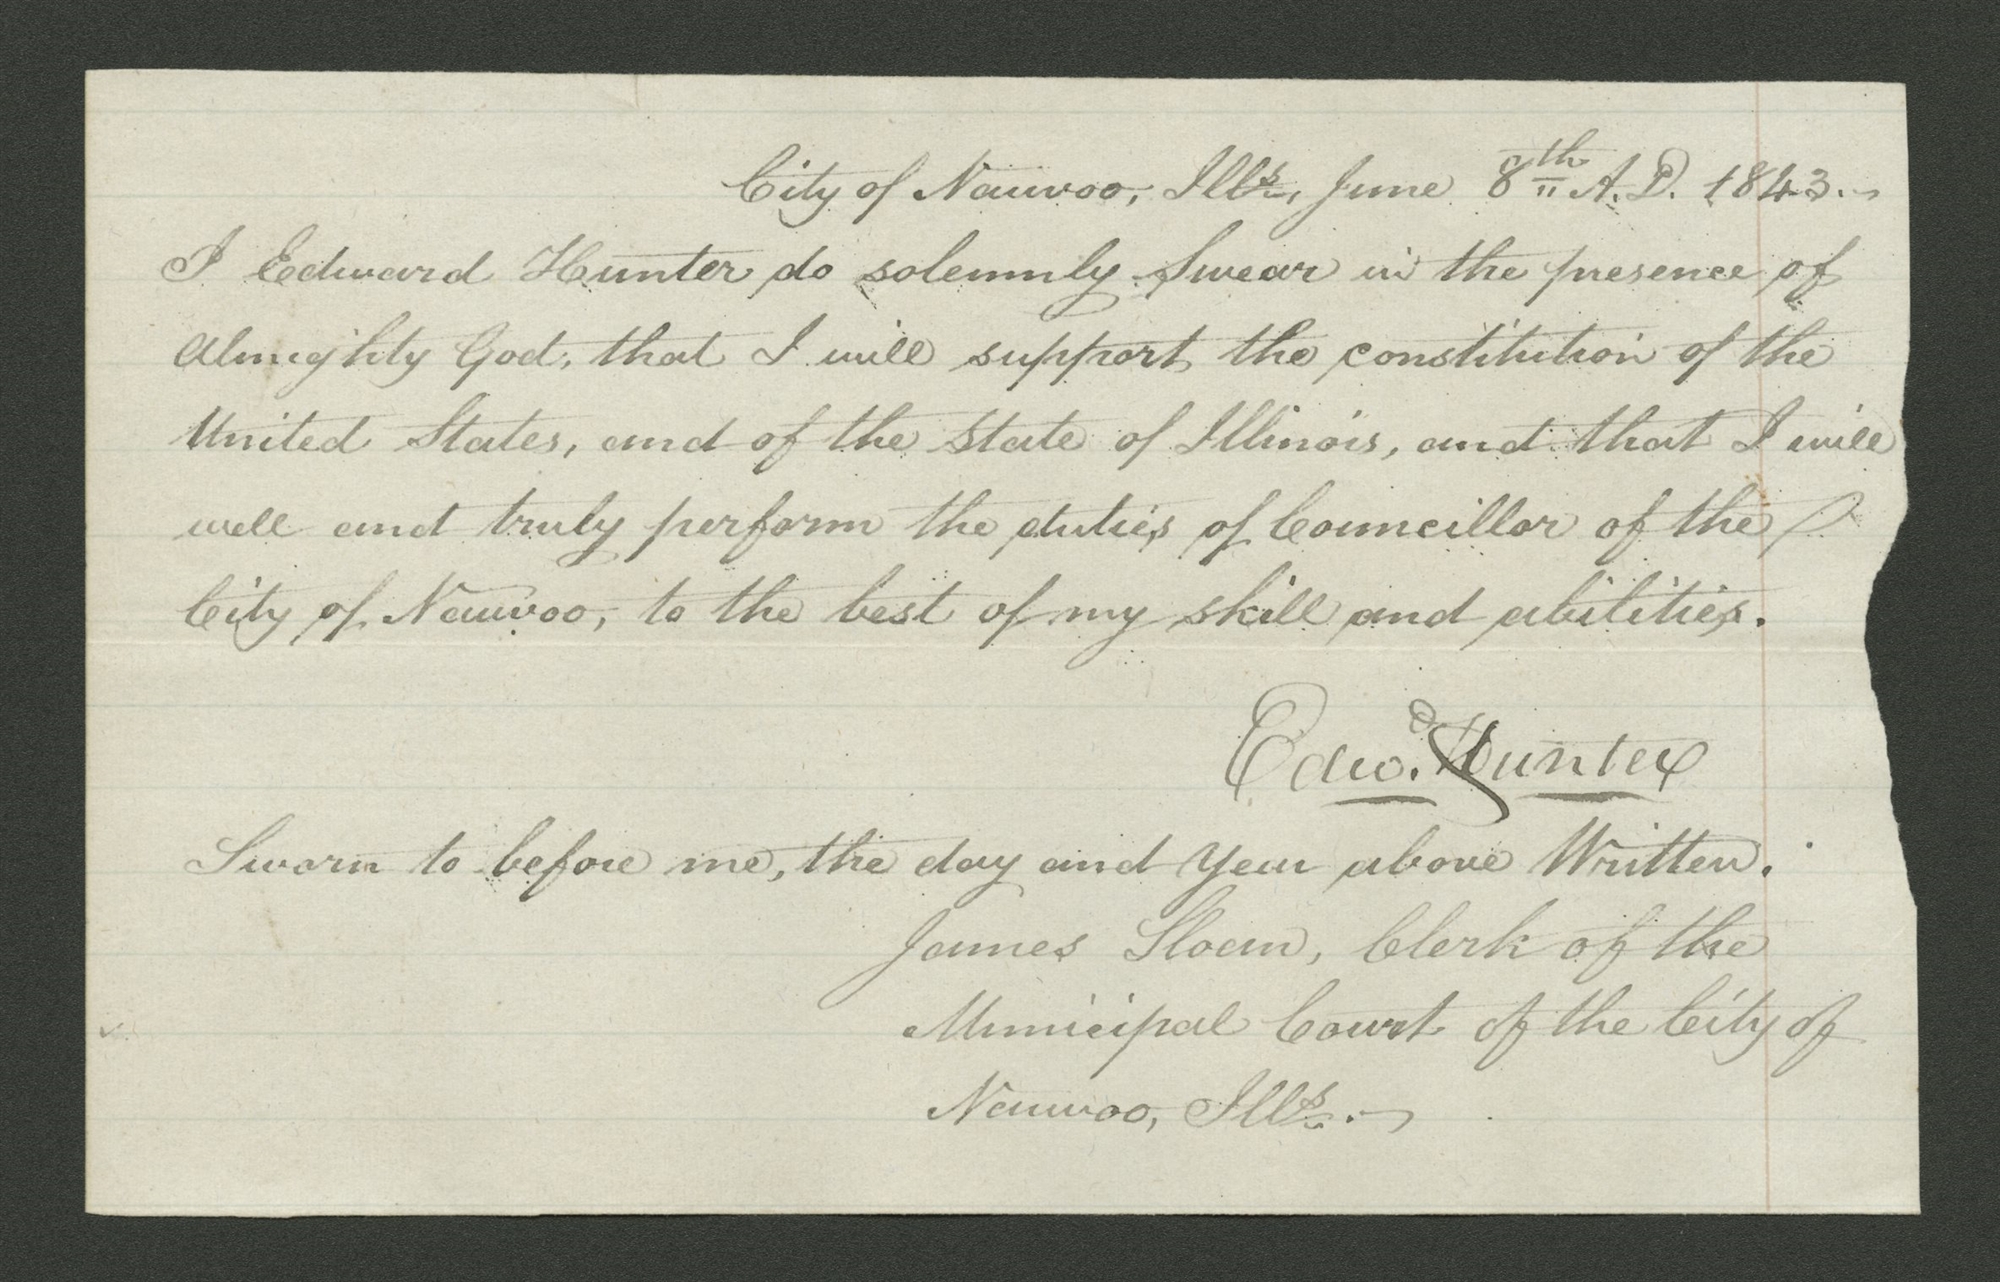 City of Nauvoo, Ills, June 8th A.D. 1843.
I Edward Hunter do solemnly Swear in the presence of
Almighty God, that I will support the constitution of the
United States, and of the State of Illinois, and that I will
well and truly perform the duties of Councillor of the
City of Nauvoo, to the best of my skill and abilities.
Edwd. Hunter
Sworn to before me, the day and Year above Written.
James Sloan, Clerk of the
Municipal Court of the City of
Nauvoo, Ills.